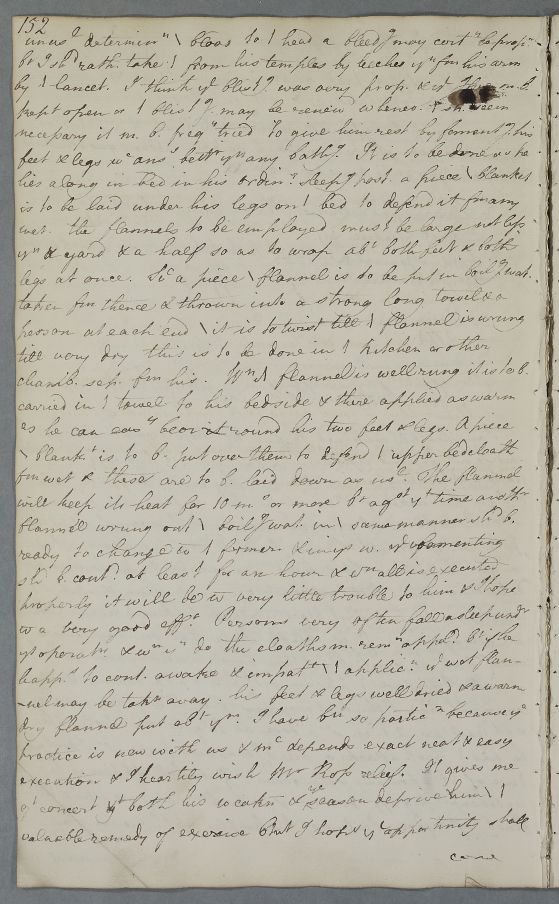 152
unus.l determin.n \ bloos to 1 head a bleed.g may cert.n b prop.r
bt I sh.d rath. take 1 from his temples by leeches y.n fm his arm
by 1 lancet. I think y.t blist.g was very prop. & if
kept open or 1 blist.g may be renew'd whenev.
necessary it m. b. freq.n tried to give him rest by foment.g his
feet & legs w.c ans.s bett.r y.n any bath.g. It is to be done as he
lies along in bed in his ordin.y sleep.g post. a piece \ blanket
is to be laid under his legs on 1 bed to defend it fm any
wet. The flannels to be employed must be large not less
y.n a yard & a half so as to wrap ab.t both feet & both
legs at once. Sc a piece \ flannel is to be put in boil.g wat.
taken fm thence & thrown into a strong long towel & a
person at each end \ it is to twist till 1 flannel is wrung
till very dry this is to be done in 1 kitchen or other
chamb. sep. fm his. W.n 1 flannel is well rung it is to b.
carried in 1 towel to his bedside & there applied as warm
as he can bear it round his two feet & legs. A piece
\ blank.t is to b. put over them to defend 1 upper bedcloath
fm wet & these are to b. laid down as us.l The flannel
will keep its heat for 10 m.s or more bt ag.st y.t time anoth.r
flannel wrung out \ boil.g wat. in 1 same manner sh.d b.
ready to change w 1 former & in ys w. y.e fomenting
sh.d b. cont.d at least for an hour & wn all is executed
properly it will be w very little trouble to him & I hope
w a very good eff.t Persons very often fall asleep und.r
ys operat.n & w.n y.s do the cloaths m. rem.n appl.d bt if he
happ.s to cont. awake & impat.t \ 1 applic.n y.e wet flan-
-nel may be tak.n away. his feet & legs well dried & a warm
dry flannel put ab.t y.m I have bn so partic.r because y.s
practice is new with us & mc depends exact neat & easy
execution & I heartily wish Mr Ross relief. It gives me
gt concert yt both his weakn & ye season deprive him \ 1
valuable remedy of exercise but I hope y.t apportunity shall
come